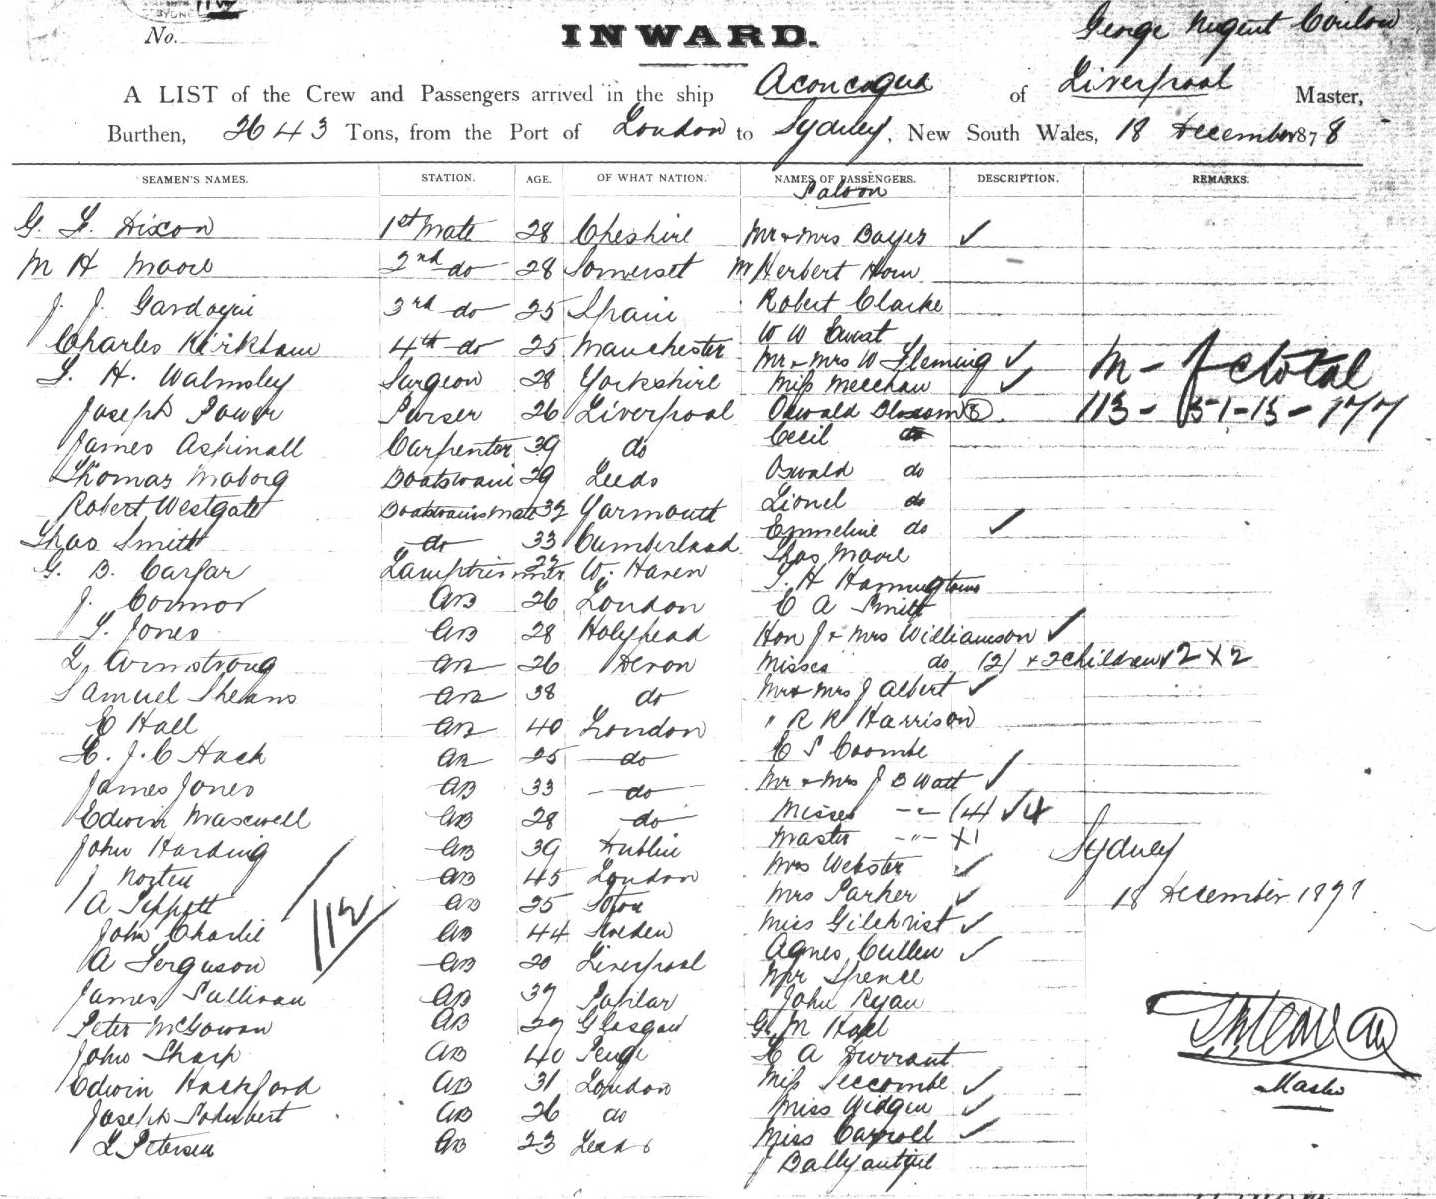 SYDNEY
No.
INWARD.
George Nugent Conlan
A LIST of the Crew and Passengers arrived in the ship Aconcagua of Liverpool Master,
Burthen, 2643 Tons, from the Port of London to Sydney, New South Wales, 18 December 1878
SEAMEN'S NAMES. STATION. AGE. OF WHAT NATION. NAMES OF PASSENGERS. DESCRIPTION. REMARKS.
Saloon
G. F. Dixon 1st Mate 28 Cheshire Mr & Mrs Bayes ✓
M H Moore 2nd do 28 Somerset Mr Herbert Horn
J. J. 3rd do 25 Spain Robert Clarke
Charles Kirkham 4th do 25 Manchester W W
Mr & Mrs W Fleming ✓ M - f c total
H. Walmsley Surgeon 28 Yorkshire Miss Meechan ✓
Joseph Power Purser 26 Liverpool Oswald Blossom (8). 113 - 51 - 13 - 177
James Aspinall Carpenter 39 do Cecil do
Thomas Maborg Boatswain 39 Leeds Oswald do
Robert Westgate Boatswains Mate 32 Yarmouth Lionel do
Emmeline do ✓
Thos Smith do 33 Cumberland Thos Moore
G. B. Carfar Lamptrimmer W. Haven H
J. Connor AB 26 London C A Smith
Jones AB 28 Holyhead Hon J & Mrs Williamson ✓
L. Armstrong AB 26 Devon Misses do (2) & 2 children ✓ 2 X 2
Samuel AB 38 do Mr & Mrs J Albert ✓
C Hall AB 40 London " R R Harrison
J. C Hack AB 25 do C S Coombe
James Jones AB 33 do Mr & Mrs J B Watt ✓
Edwin Maxwell AB 28 do Misses -"- (4) ✓ 4
Master -"- X1
John Harding AB 39 Dublin Mrs Webster ✓ Sydney
J AB 45 London Mrs Parker ✓ 18 December 187
A Tippett AB 25 Soton Miss Gilchrist ✓
112
John Charlie AB 44 Sweden Agnes Cullen ✓
A Ferguson AB 20 Liverpool Mr Spence
James Sullivan AB 37 Poplar John Ryan
Peter McGowan AB 27 Glasgow G. M
John Sharp AB 40 Penge A Durrant
Edwin Hackford AB 31 London Miss Seccombe ✓ Master
Joseph Schubert AB 26 do Miss Widgen ✓
L Petersen AB 23 Leeds Miss Carroll ✓
J Ballyantyne